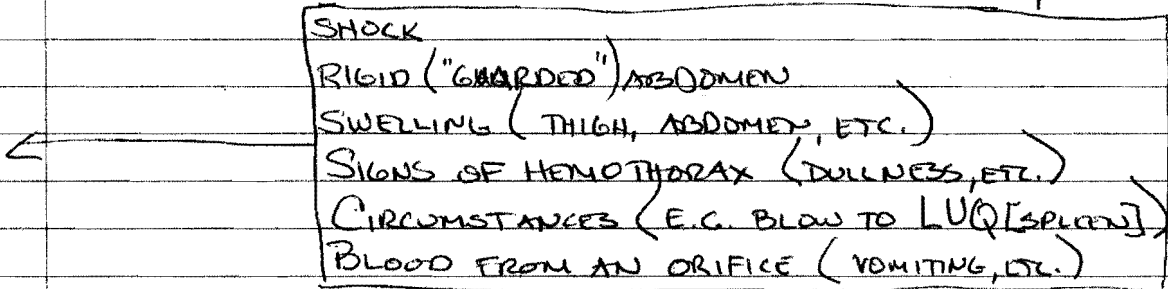 SHOCK
RIGID ("GUARDED") ABDOMEN
SWELLING (THIGH, ABDOMEN, ETC.)
SIGNS OF HEMOTHORAX (DULLNESS, ETC.)
CIRCUMSTANCES (E.G. BLOW TO LUQ [SPLEEN])
BLOOD FROM AN ORIFICE (VOMITING, ETC.)